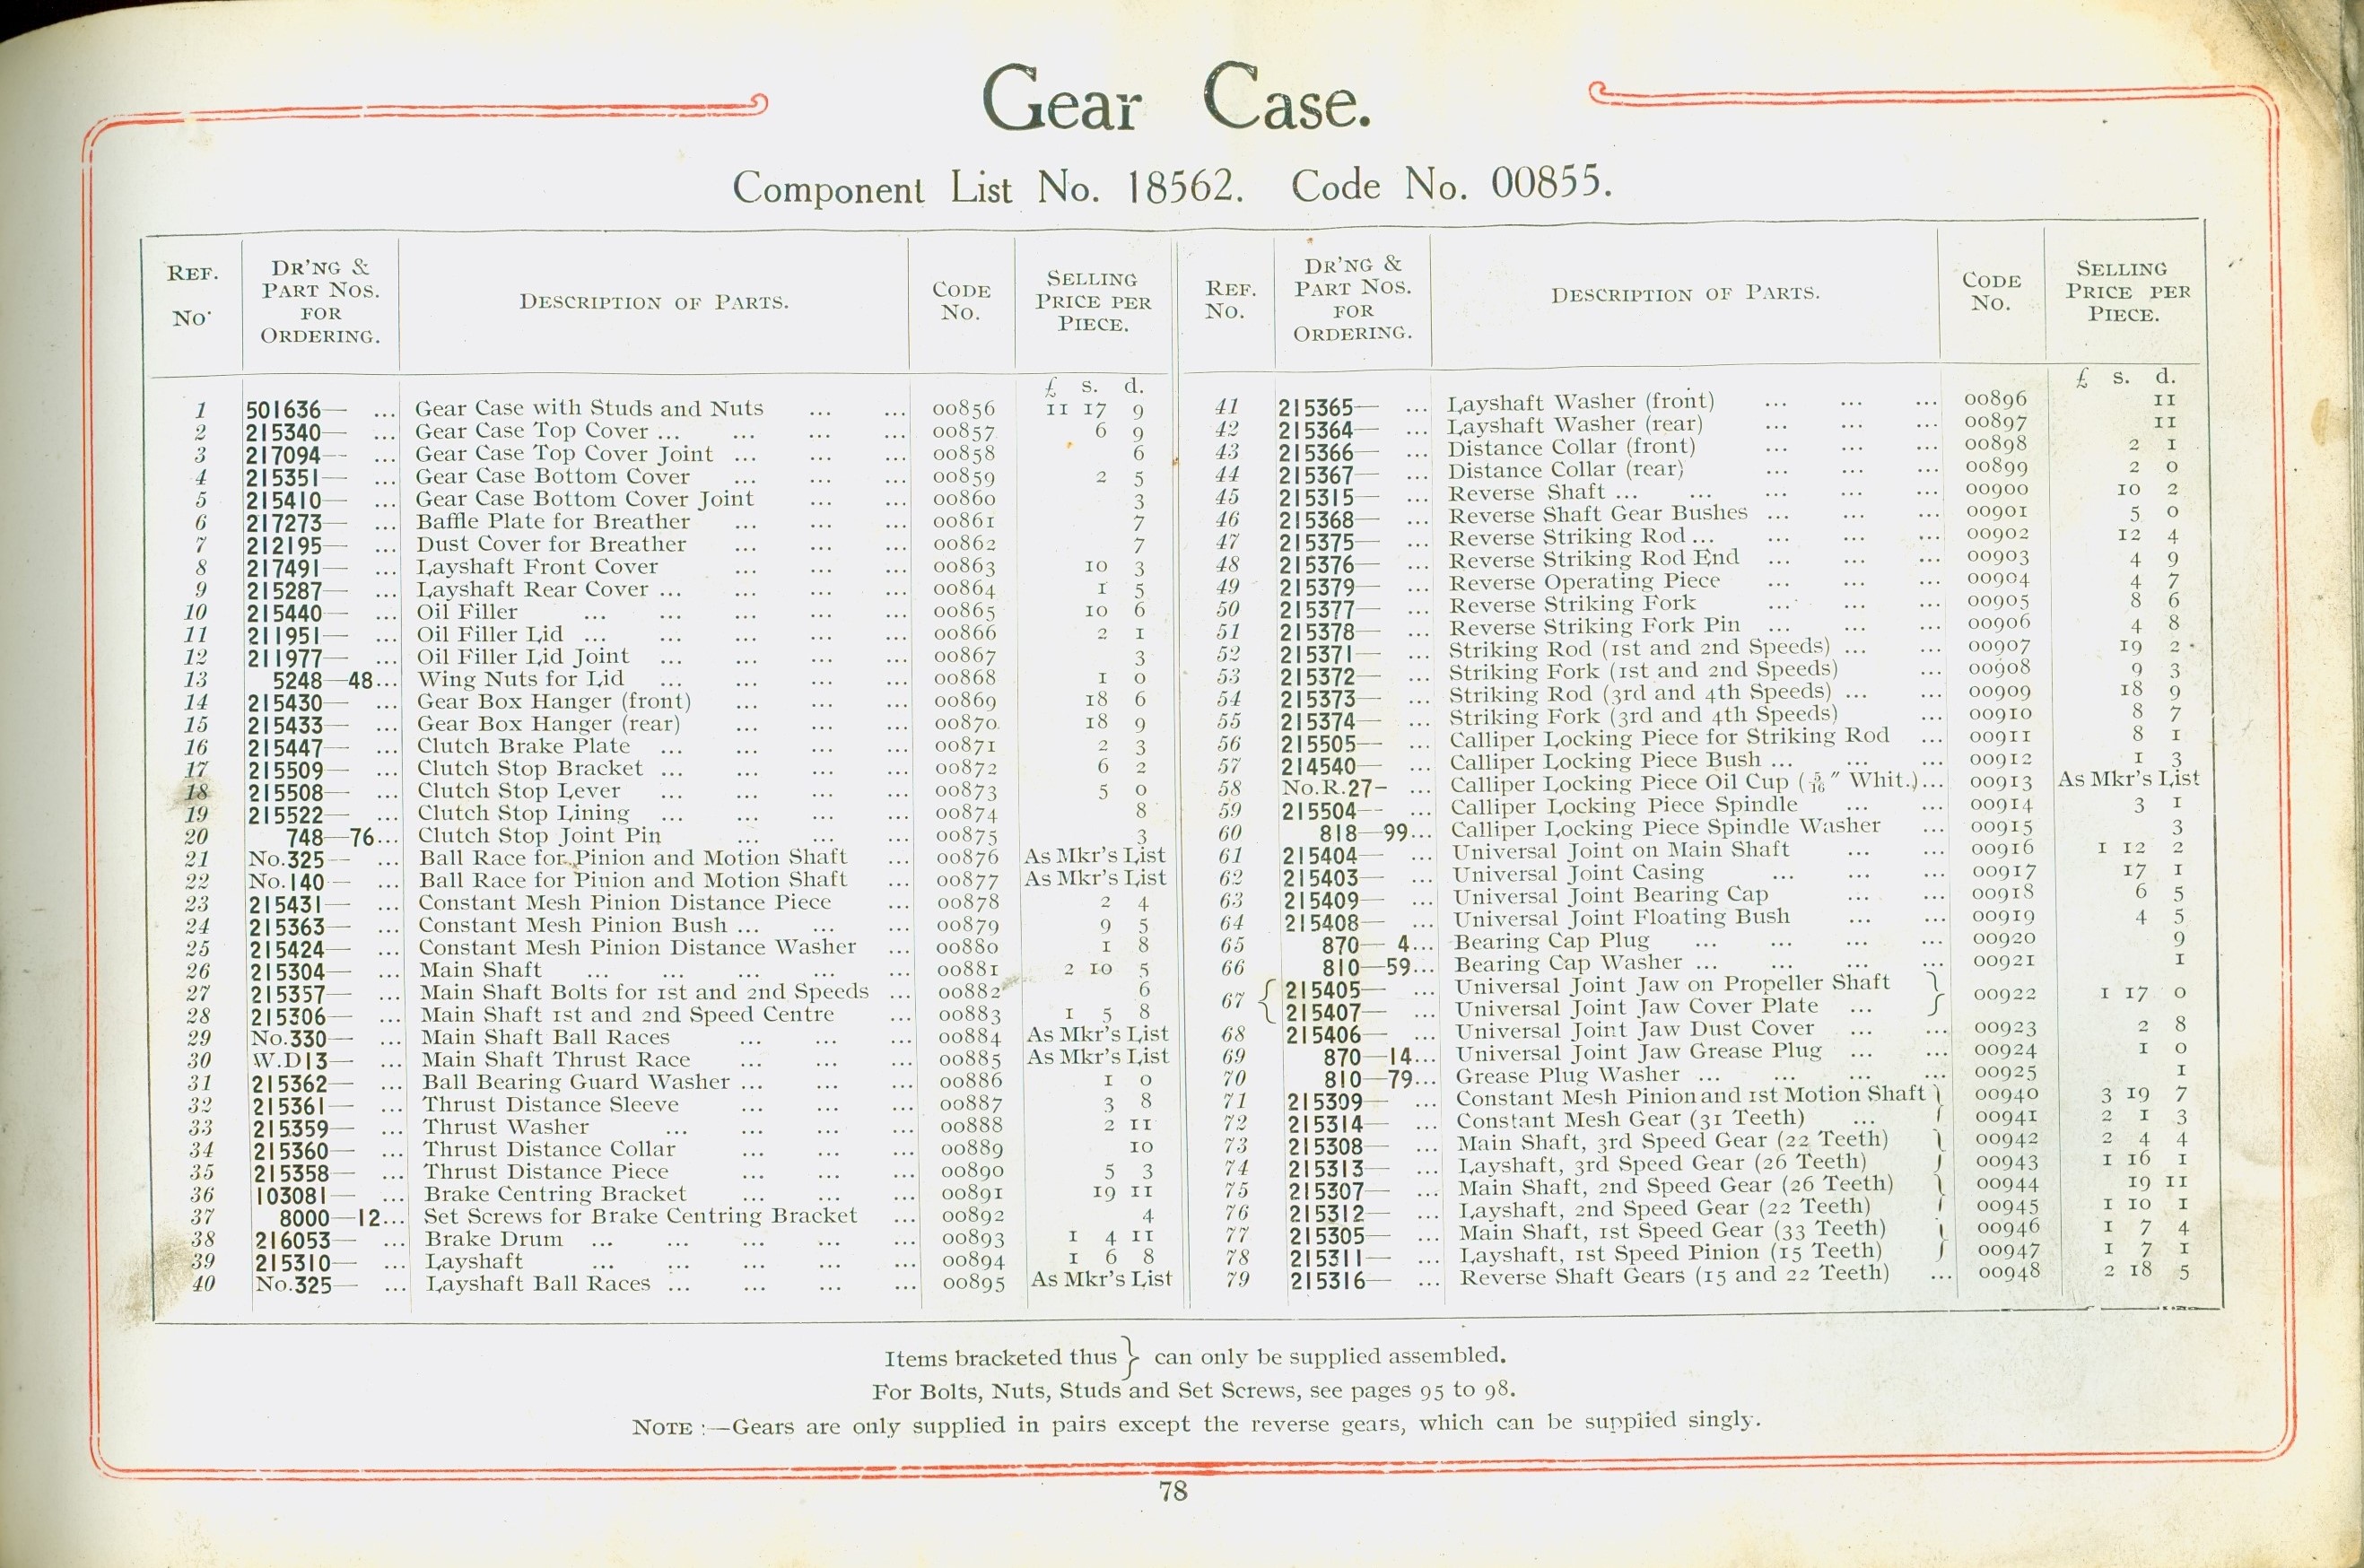 Gear Case.
Component List No. 18562. Code No. 00855.
REF. No. DR'NG & PART NOS. FOR ORDERING. DESCRIPTION OF PARTS. CODE NO. SELLING PRICE PER PIECE.
£ s. d.
1 501636— ... Gear Case with Studs and Nuts ... ... 00856 11 17 9
2 215340— ... Gear Case Top Cover ... ... ... ... 00857 6 9
3 217094— ... Gear Case Top Cover Joint ... ... ... 00858 6
4 215351— ... Gear Case Bottom Cover ... ... ... 00859 2 5
5 215410— ... Gear Case Bottom Cover Joint ... ... 00860 3
6 217273— ... Baffle Plate for Breather ... ... ... 00861 7
7 212195— ... Dust Cover for Breather ... ... ... 00862 7
8 217491— ... Layshaft Front Cover ... ... ... 00863 10 3
9 215287— ... Layshaft Rear Cover ... ... ... ... 00864 1 5
10 215440— ... Oil Filler ... ... ... ... ... 00865 10 6
11 211951— ... Oil Filler Lid ... ... ... ... ... 00866 2 1
12 211977— ... Oil Filler Lid Joint ... ... ... ... 00867 3
13 5248—48... Wing Nuts for Lid ... ... ... ... 00868 1 0
14 215430— ... Gear Box Hanger (front) ... ... ... 00869 18 6
15 215433— ... Gear Box Hanger (rear) ... ... ... 00870 18 9
16 215447— ... Clutch Brake Plate ... ... ... ... 00871 2 3
17 215509— ... Clutch Stop Bracket ... ... ... ... 00872 6 2
18 215508— ... Clutch Stop Lever ... ... ... ... 00873 5 0
19 215522— ... Clutch Stop Lining ... ... ... ... 00874 8
20 748—76... Clutch Stop Joint Pin ... ... ... 00875 3
21 No.325— ... Ball Race for Pinion and Motion Shaft ... 00876 As Mkr's List
22 No.140— ... Ball Race for Pinion and Motion Shaft ... 00877 As Mkr's List
23 215431— ... Constant Mesh Pinion Distance Piece ... 00878 2 4
24 215363— ... Constant Mesh Pinion Bush ... ... ... 00879 9 5
25 215424— ... Constant Mesh Pinion Distance Washer ... 00880 1 8
26 215304— ... Main Shaft ... ... ... ... ... 00881 2 10 5
27 215357— ... Main Shaft Bolts for 1st and 2nd Speeds ... 00882 6
28 215306— ... Main Shaft 1st and 2nd Speed Centre ... 00883 1 5 8
29 No.330— ... Main Shaft Ball Races ... ... ... 00884 As Mkr's List
30 W.D13— ... Main Shaft Thrust Race ... ... ... 00885 As Mkr's List
31 215362— ... Ball Bearing Guard Washer ... ... ... 00886 1 0
32 215361— ... Thrust Distance Sleeve ... ... ... 00887 3 8
33 215359— ... Thrust Washer ... ... ... ... 00888 2 11
34 215360— ... Thrust Distance Collar ... ... ... 00889 10
35 215358— ... Thrust Distance Piece ... ... ... 00890 5 3
36 103081— ... Brake Centring Bracket ... ... ... 00891 19 11
37 8000—12... Set Screws for Brake Centring Bracket ... 00892 4
38 216053— ... Brake Drum ... ... ... ... ... 00893 1 4 11
39 215310— ... Layshaft ... ... ... ... ... 00894 1 6 8
40 No.325— ... Layshaft Ball Races ... ... ... ... 00895 As Mkr's List
REF. No. DR'NG & PART NOS. FOR ORDERING. DESCRIPTION OF PARTS. CODE NO. SELLING PRICE PER PIECE.
£ s. d.
41 215365— ... Layshaft Washer (front) ... ... ... 00896 11
42 215364— ... Layshaft Washer (rear) ... ... ... 00897 11
43 215366— ... Distance Collar (front) ... ... ... 00898 2 1
44 215367— ... Distance Collar (rear) ... ... ... 00899 2 0
45 215315— ... Reverse Shaft ... ... ... ... 00900 10 2
46 215368— ... Reverse Shaft Gear Bushes ... ... ... 00901 5 0
47 215375— ... Reverse Striking Rod ... ... ... ... 00902 12 4
48 215376— ... Reverse Striking Rod End ... ... ... 00903 4 9
49 215379— ... Reverse Operating Piece ... ... ... 00904 4 7
50 215377— ... Reverse Striking Fork ... ... ... 00905 8 6
51 215378— ... Reverse Striking Fork Pin ... ... ... 00906 4 8
52 215371— ... Striking Rod (1st and 2nd Speeds) ... ... 00907 19 2
53 215372— ... Striking Fork (1st and 2nd Speeds) ... 00908 9 3
54 215373— ... Striking Rod (3rd and 4th Speeds) ... ... 00909 18 9
55 215374— ... Striking Fork (3rd and 4th Speeds) ... 00910 8 7
56 215505— ... Calliper Locking Piece for Striking Rod ... 00911 8 1
57 214540— ... Calliper Locking Piece Bush ... ... ... 00912 1 3
58 No.R.27- ... Calliper Locking Piece Oil Cup (5/16" Whit.)... 00913 As Mkr's List
59 215504— ... Calliper Locking Piece Spindle ... ... 00914 3 1
60 818—99... Calliper Locking Piece Spindle Washer ... 00915 3
61 215404— ... Universal Joint on Main Shaft ... ... 00916 1 12 2
62 215403— ... Universal Joint Casing ... ... ... 00917 17 1
63 215409— ... Universal Joint Bearing Cap ... ... 00918 6 5
64 215408— ... Universal Joint Floating Bush ... ... 00919 4 5
65 870— 4... Bearing Cap Plug ... ... ... ... 00920 9
66 810—59... Bearing Cap Washer ... ... ... ... 00921 1
67 { 215405— ... Universal Joint Jaw on Propeller Shaft } 00922 1 17 0
215407— ... Universal Joint Jaw Cover Plate ...
68 215406— ... Universal Joint Jaw Dust Cover ... ... 00923 2 8
69 870—14... Universal Joint Jaw Grease Plug ... ... 00924 1 0
70 810—79... Grease Plug Washer ... ... ... ... 00925 1
71 215309— ... Constant Mesh Pinion and 1st Motion Shaft } 00940 3 19 7
72 215314— ... Constant Mesh Gear (31 Teeth) ... 00941 2 1 3
73 215308— ... Main Shaft, 3rd Speed Gear (22 Teeth) } 00942 2 4 4
74 215313— ... Layshaft, 3rd Speed Gear (26 Teeth) 00943 1 16 1
75 215307— ... Main Shaft, 2nd Speed Gear (26 Teeth) } 00944 19 11
76 215312— ... Layshaft, 2nd Speed Gear (22 Teeth) 00945 1 10 1
77 215305— ... Main Shaft, 1st Speed Gear (33 Teeth) } 00946 1 7 4
78 215311— ... Layshaft, 1st Speed Pinion (15 Teeth) 00947 1 7 1
79 215316— ... Reverse Shaft Gears (15 and 22 Teeth) ... 00948 2 18 5
Items bracketed thus } can only be supplied assembled.
For Bolts, Nuts, Studs and Set Screws, see pages 95 to 98.
NOTE :—Gears are only supplied in pairs except the reverse gears, which can be supplied singly.
78